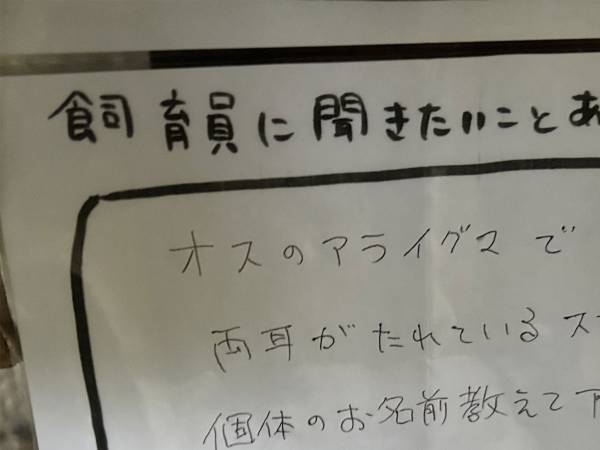 飼育員に聞きたいことあ
オスのアライグマで
両耳がたれているス
個体のお名前教えて下